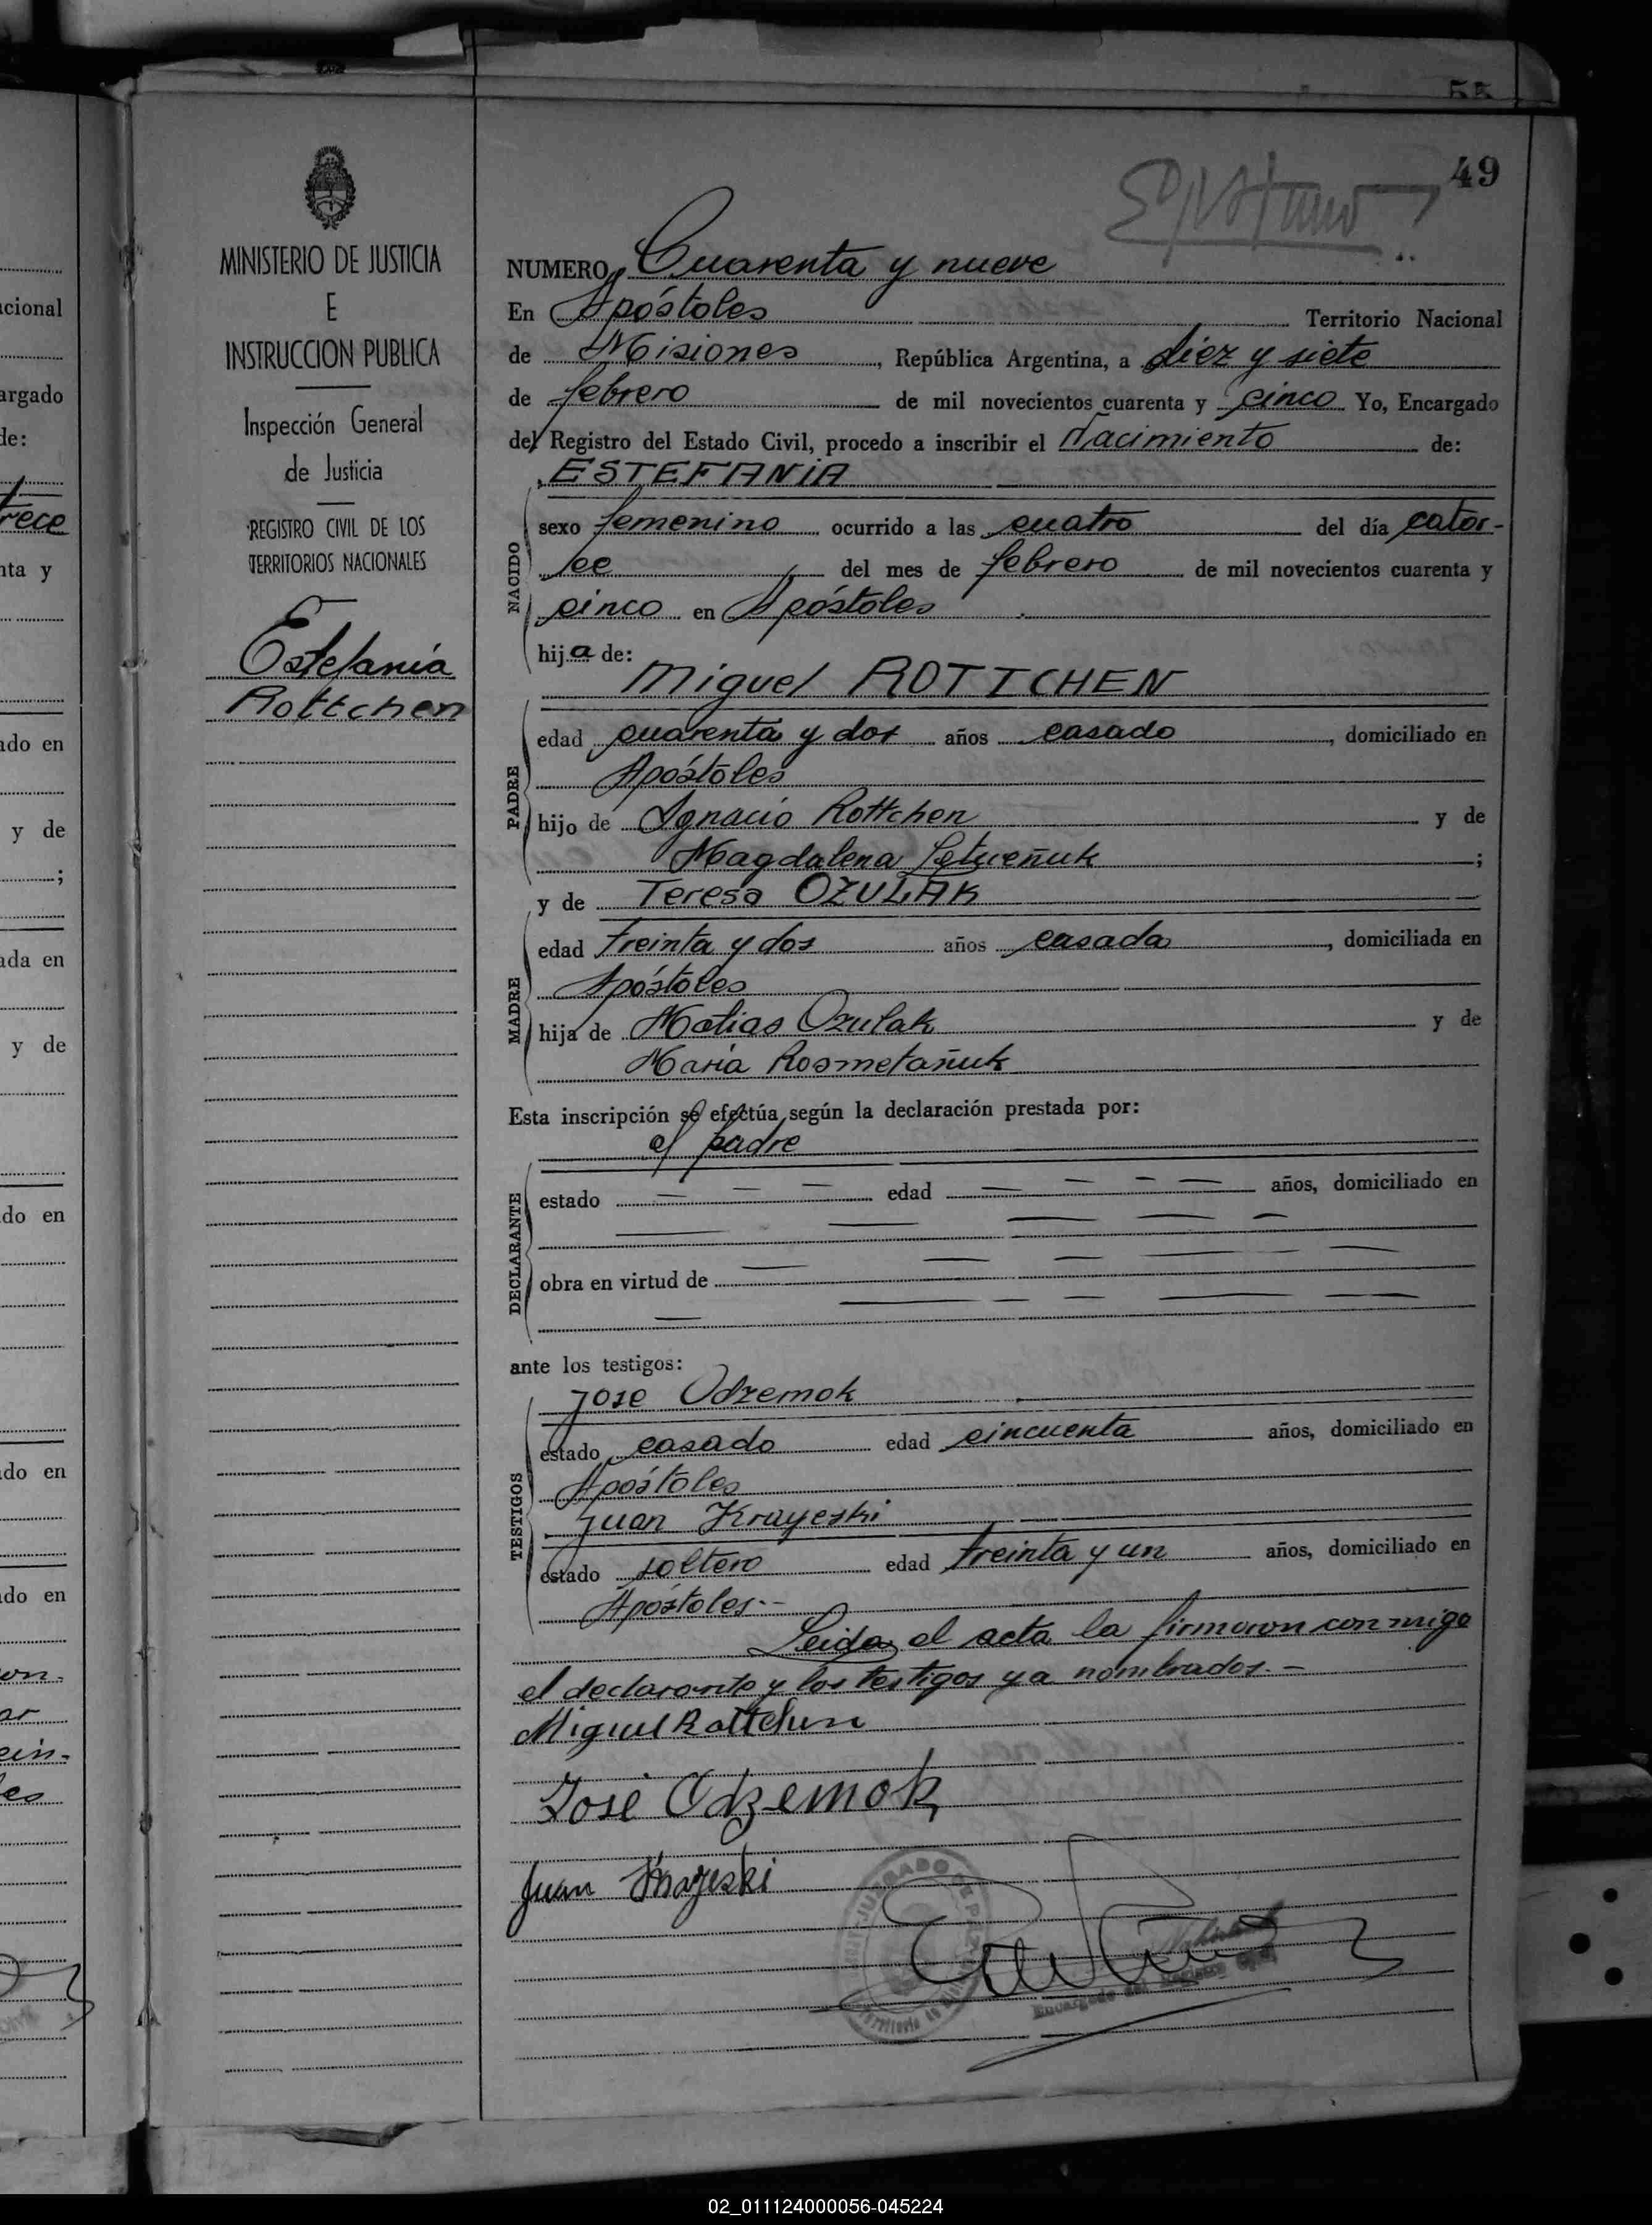 55
49
MINISTERIO DE JUSTICIA
E
INSTRUCCION PUBLICA
Inspección General
de Justicia
REGISTRO CIVIL DE LOS
TERRITORIOS NACIONALES
Estefanía
Rottchen
NUMERO Cuarenta y nueve
En Apóstoles Territorio Nacional
de Misiones, República Argentina, a diez y siete
de febrero de mil novecientos cuarenta y cinco Yo, Encargado
del Registro del Estado Civil, procedo a inscribir el Nacimiento de:
ESTEFANIA
NACIDO
sexo femenino ocurrido a las cuatro del día cator-
ce del mes de febrero de mil novecientos cuarenta y
cinco en Apóstoles
hija de:
Miguel ROTTCHEN
PADRE
edad cuarenta y dos años casado, domiciliado en
Apóstoles
hijo de Ignacio Rottchen y de
Magdalena ;
y de Teresa OZULAK
MADRE
edad treinta y dos años casada, domiciliada en
Apóstoles
hija de Matias Ozulak y de
María Rosmetañuk
Esta inscripción se efectúa según la declaración prestada por:
el padre
DECLARANTE
estado — — — edad — — — — años, domiciliado en
obra en virtud de
ante los testigos:
Jose Odzemok
TESTIGOS
estado casado edad cincuenta años, domiciliado en
Apóstoles
Juan Krayeski
estado soltero edad treinta y un años, domiciliado en
Apóstoles.-
Leida el acta la firmaron conmigo
el declarante y los testigos ya nombrados.-
Miguel Rottchen
José Odzemok
Juan Krayeski
JUZGADO DE PAZ
Encargado del Registro Civil
02_011124000056-045224